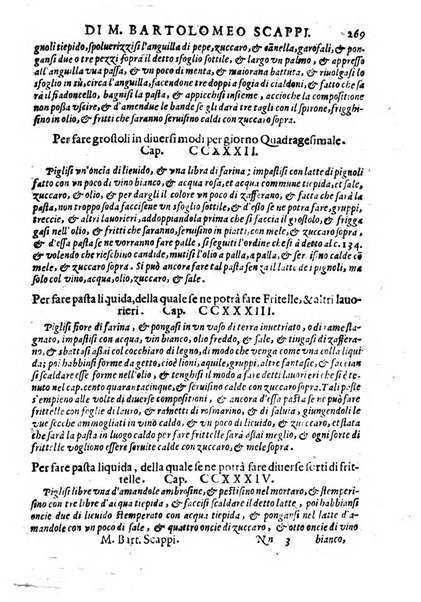 DI M. BARTOLOMEO SCAPPI. 269
gnoli tiepido, spoluerizzisi l'anguilla di pepe, zuccaro, & cãnella, garofali, & pon-
gansi due o tre pezzi soprà il detto sfoglio sottile, & largo vn palmo, & appresso
all'anguilla vua passa, & vn poco di menta, & maiorana battuta, & riuolgasi lo
sfoglio in sù, circa l'anguilla, facendone tondo detto sfoglio a foggia di cialdoni, & fatto che
sarà il fiadoncello, bagnisi la pasta, & appicchisi insieme, accioche la compositione
non possa vscire, & d'amendue le bande se gli darà tre volte con il spirone, frigghi-
sino in olio, & fritti che saranno seruisino caldi con zuccaro sopra.
Per fare grostoli in diuersi modi per giorno Quadragesimale.
Cap. CCXXXII.
Piglisi vn'oncia di lieuido, & vna libra di farina; impastisi con latte di pignoli
fatto con vn poco di vino bianco, & acqua rosa, et acqua commune tiepida, et sale,
zuccaro, & olio, & per dargli colore, mettauisi vn poco di zafferano, & fatta che sarà la
pasta, non troppo soda faccisene vn sfoglio sottile, & d'esso se ne potrà fare, gruppi,
treccie, & altri lauorieri, addoppiandola prima che si faccia il grostolo, & frigga-
gasi nell'olio, & fritti che saranno, seruisino in piatti, con mele, & zuccaro sopra,
& d'essa pasta se ne vorranno far palle, si seguiti l'ordine che s'è detto al c. 134.
& volendo che rieschino candide, mutisi l'olio a palla, a palla, & ser. isino calde di
mele, & zuccaro sopra. Si può ancora far tal pasta sen za il latte de i pignoli, ma
sol con vino, acqua, olio, zuccaro, & sale.
Per fare pasta liquida, della quale se ne potrà fare Fritelle, & altri lauo-
rieri. Cap. CCXXXIII.
Piglisi fiore di farina, & pongasi in vn vaso di terra inuetriato, o di rame sta-
gnato, impastisi con acqua, vin bianco, olio freddo, & sale, & tingasi di zaffe-
rano, & sbattasi col cocchiaro di legno, di modo che venga come vna colla liqui
da; poi habbinsi forme da getto, cioè lioni, aquile, gruppi, altre fantasie, & faccian
si scaldare esse forme nell'olio, & tenghisi il modo a fare i detti lauorieri che s'è te-
nuto nel cap. cento quarantacinque, & seruisino caldi con zuccaro sopra. Tal pasta
s'empieno alle volte di diuerse compositioni, & ancho d'essa se ne potrà fare
frittelle con foglie di lauro, & rametti di rosmarino, & di saluia, giungendoli le
vue secche ammogliati in vino caldo, & vn poco di lieuido, & zuccaro, & fatto che
sarà la pasta in luogo caldo per fare frittelle sarà assai meglio, & ogni sorte di
frittelle vogliono essere seruite calde con zuccaro, & mele.
Per fare pasta liquida, della quale se ne potrà fare diuerse sorti di frit-
telle. Cap. CCXXXIV.
Piglisi libre vna d'amandole ambrosine, & pestisino nel mortaro, & stemperi-
sino con tre libre d'acqua tiepida, & faccisi scaldare il detto latte, poi habbiansi
oncie due di lieuido stemperato con acqua tiepida, & pongasi in quel latte d'a-
mandole con vn poco di sale, & quattro oncie di zuccaro, & otto oncie di vino
M. Bart. Scappi. Nn 3 bianco,